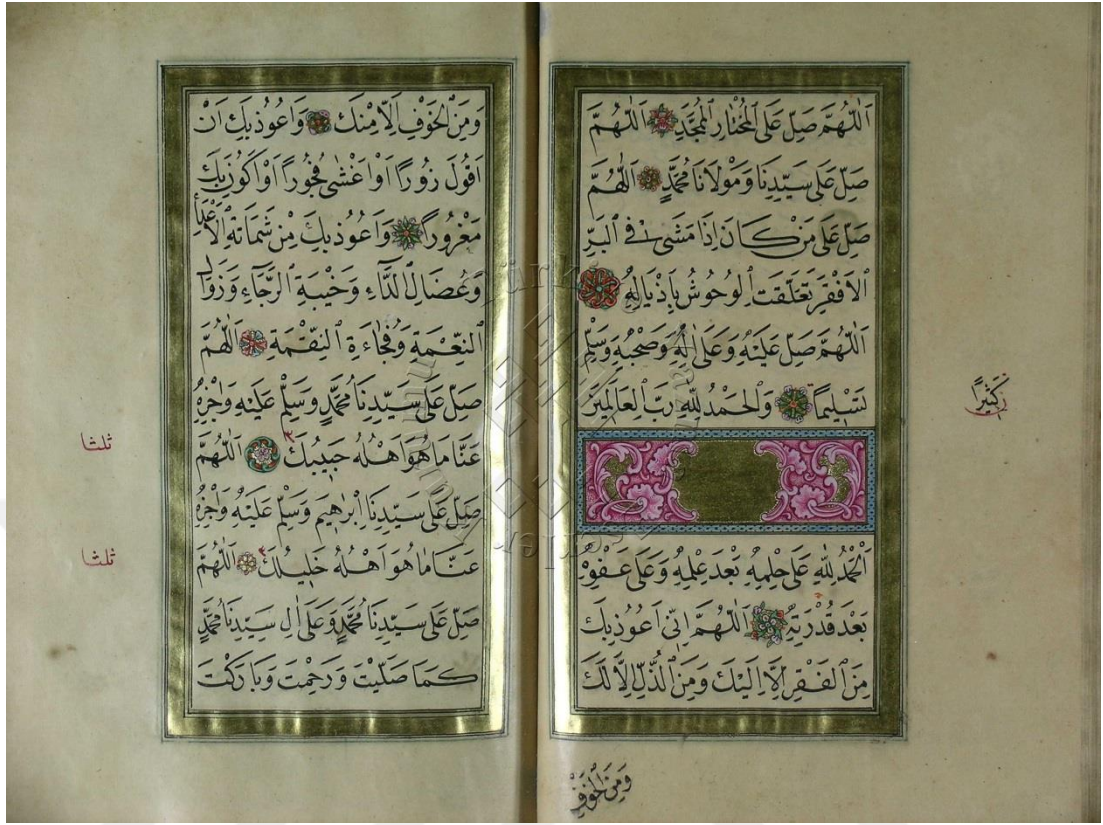 اَللّٰهُمَّ صَلِّ عَلَى الْمُخْتَارِ الْمُمَجَّدِ اَللّٰهُمَّ
صَلِّ عَلَى سَيِّدِنَا وَمَوْلَانَا مُحَمَّدٍ اَللّٰهُمَّ
صَلِّ عَلَى مَنْ كَانَ اِذَا مَشٰى فِى الْبَرِّ
الْاَقْفَرِ تَعَلَّقَتِ الْوُحُوشُ بِاَذْيَالِهِ
اَللّٰهُمَّ صَلِّ عَلَيْهِ وَعَلَى اٰلِهِ وَصَحْبِهِ وَسَلِّمْ
تَسْلِيمًا وَالْحَمْدُ لِلّٰهِ رَبِّ الْعَالَمِينَ
كَثِيرًا
اَلْحَمْدُ لِلّٰهِ عَلَى حِلْمِهِ بَعْدَ عِلْمِهِ وَعَلَى عَفْوِهِ
بَعْدَ قُدْرَتِهِ اَللّٰهُمَّ اِنِّى اَعُوذُ بِكَ
مِنَ الْفَقْرِ اِلَّا اِلَيْكَ وَمِنَ الذُّلِّ اِلَّا لَكَ
وَمِنَ الْخَوْفِ
وَمِنَ الْخَوْفِ اِلَّا مِنْكَ وَاَعُوذُ بِكَ اَنْ
اَقُولَ زُورًا اَوْ اَغْشٰى فُجُورًا اَوْ اَكُونَ بِكَ
مَغْرُورًا وَاَعُوذُ بِكَ مِنْ شَمَاتَةِ الْاَعْدَاءِ
وَعُضَالِ الدَّاءِ وَخَيْبَةِ الرَّجَاءِ وَزَوَالِ
النِّعْمَةِ وَفُجَاءَةِ النِّقْمَةِ اَللّٰهُمَّ
صَلِّ عَلَى سَيِّدِنَا مُحَمَّدٍ وَسَلِّمْ عَلَيْهِ وَاجْزِهِ
عَنَّا مَا هُوَ اَهْلُهُ حَبِيبُكَ ٣ اَللّٰهُمَّ
ثلثا
صَلِّ عَلَى سَيِّدِنَا اِبْرٰهِيمَ وَسَلِّمْ عَلَيْهِ وَاجْزِهِ
عَنَّا مَا هُوَ اَهْلُهُ خَلِيلُكَ ٣ اَللّٰهُمَّ
ثلثا
صَلِّ عَلَى سَيِّدِنَا مُحَمَّدٍ وَعَلَى اٰلِ سَيِّدِنَا مُحَمَّدٍ
كَمَا صَلَّيْتَ وَرَحِمْتَ وَبَارَكْتَ